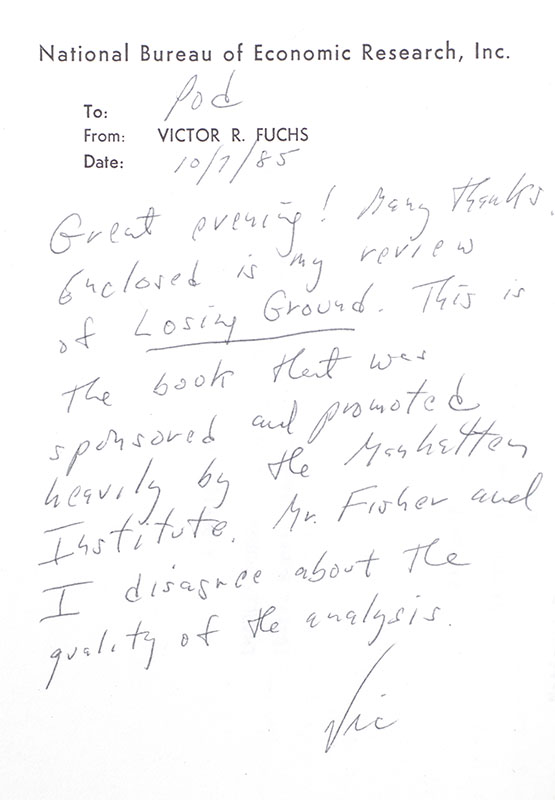 National Bureau of Economic Research, Inc.
To: Pod
From: VICTOR R. FUCHS
Date: 10/7/85
Great evening! Many thanks.
Enclosed is my review
of Losing Ground. This is
the book that was
sponsored and promoted
heavily by the Manhatten
Institute. Mr. Fisher and
I disagree about the
quality of the analysis.
Vic